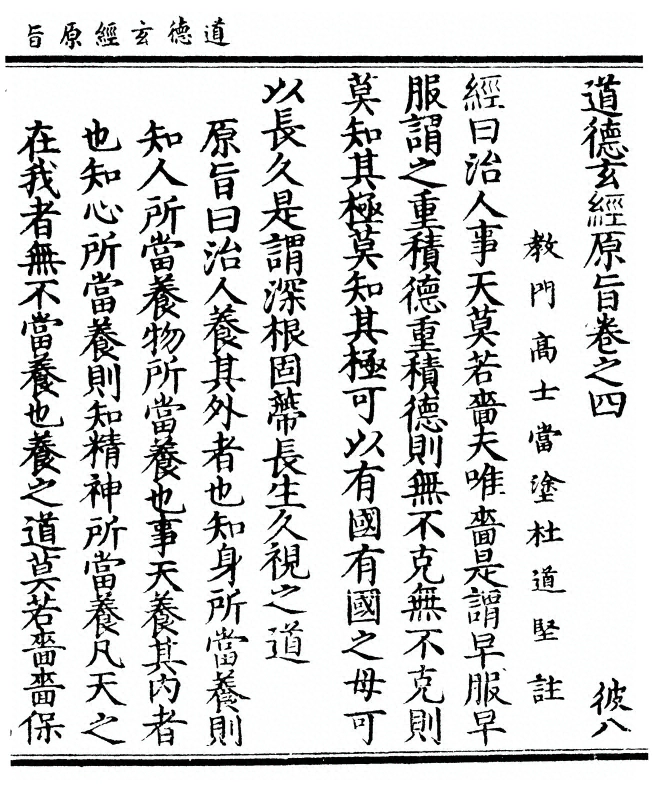 道德玄經原旨
道德玄經原旨卷之四　彼八
教門高士當塗杜道堅註
經曰治人事天莫若嗇夫唯嗇是謂早服早
服謂之重積德重積德則無不克無不克則
莫知其極莫知其極可以有國有國之母可
以長久是謂深根固蔕長生久視之道
原旨曰治人養其外者也知身所當養則
知人所當養物所當養也事天養其内者
也知心所當養則知精神所當養凡天之
在我者無不當養也養之道莫若嗇嗇保